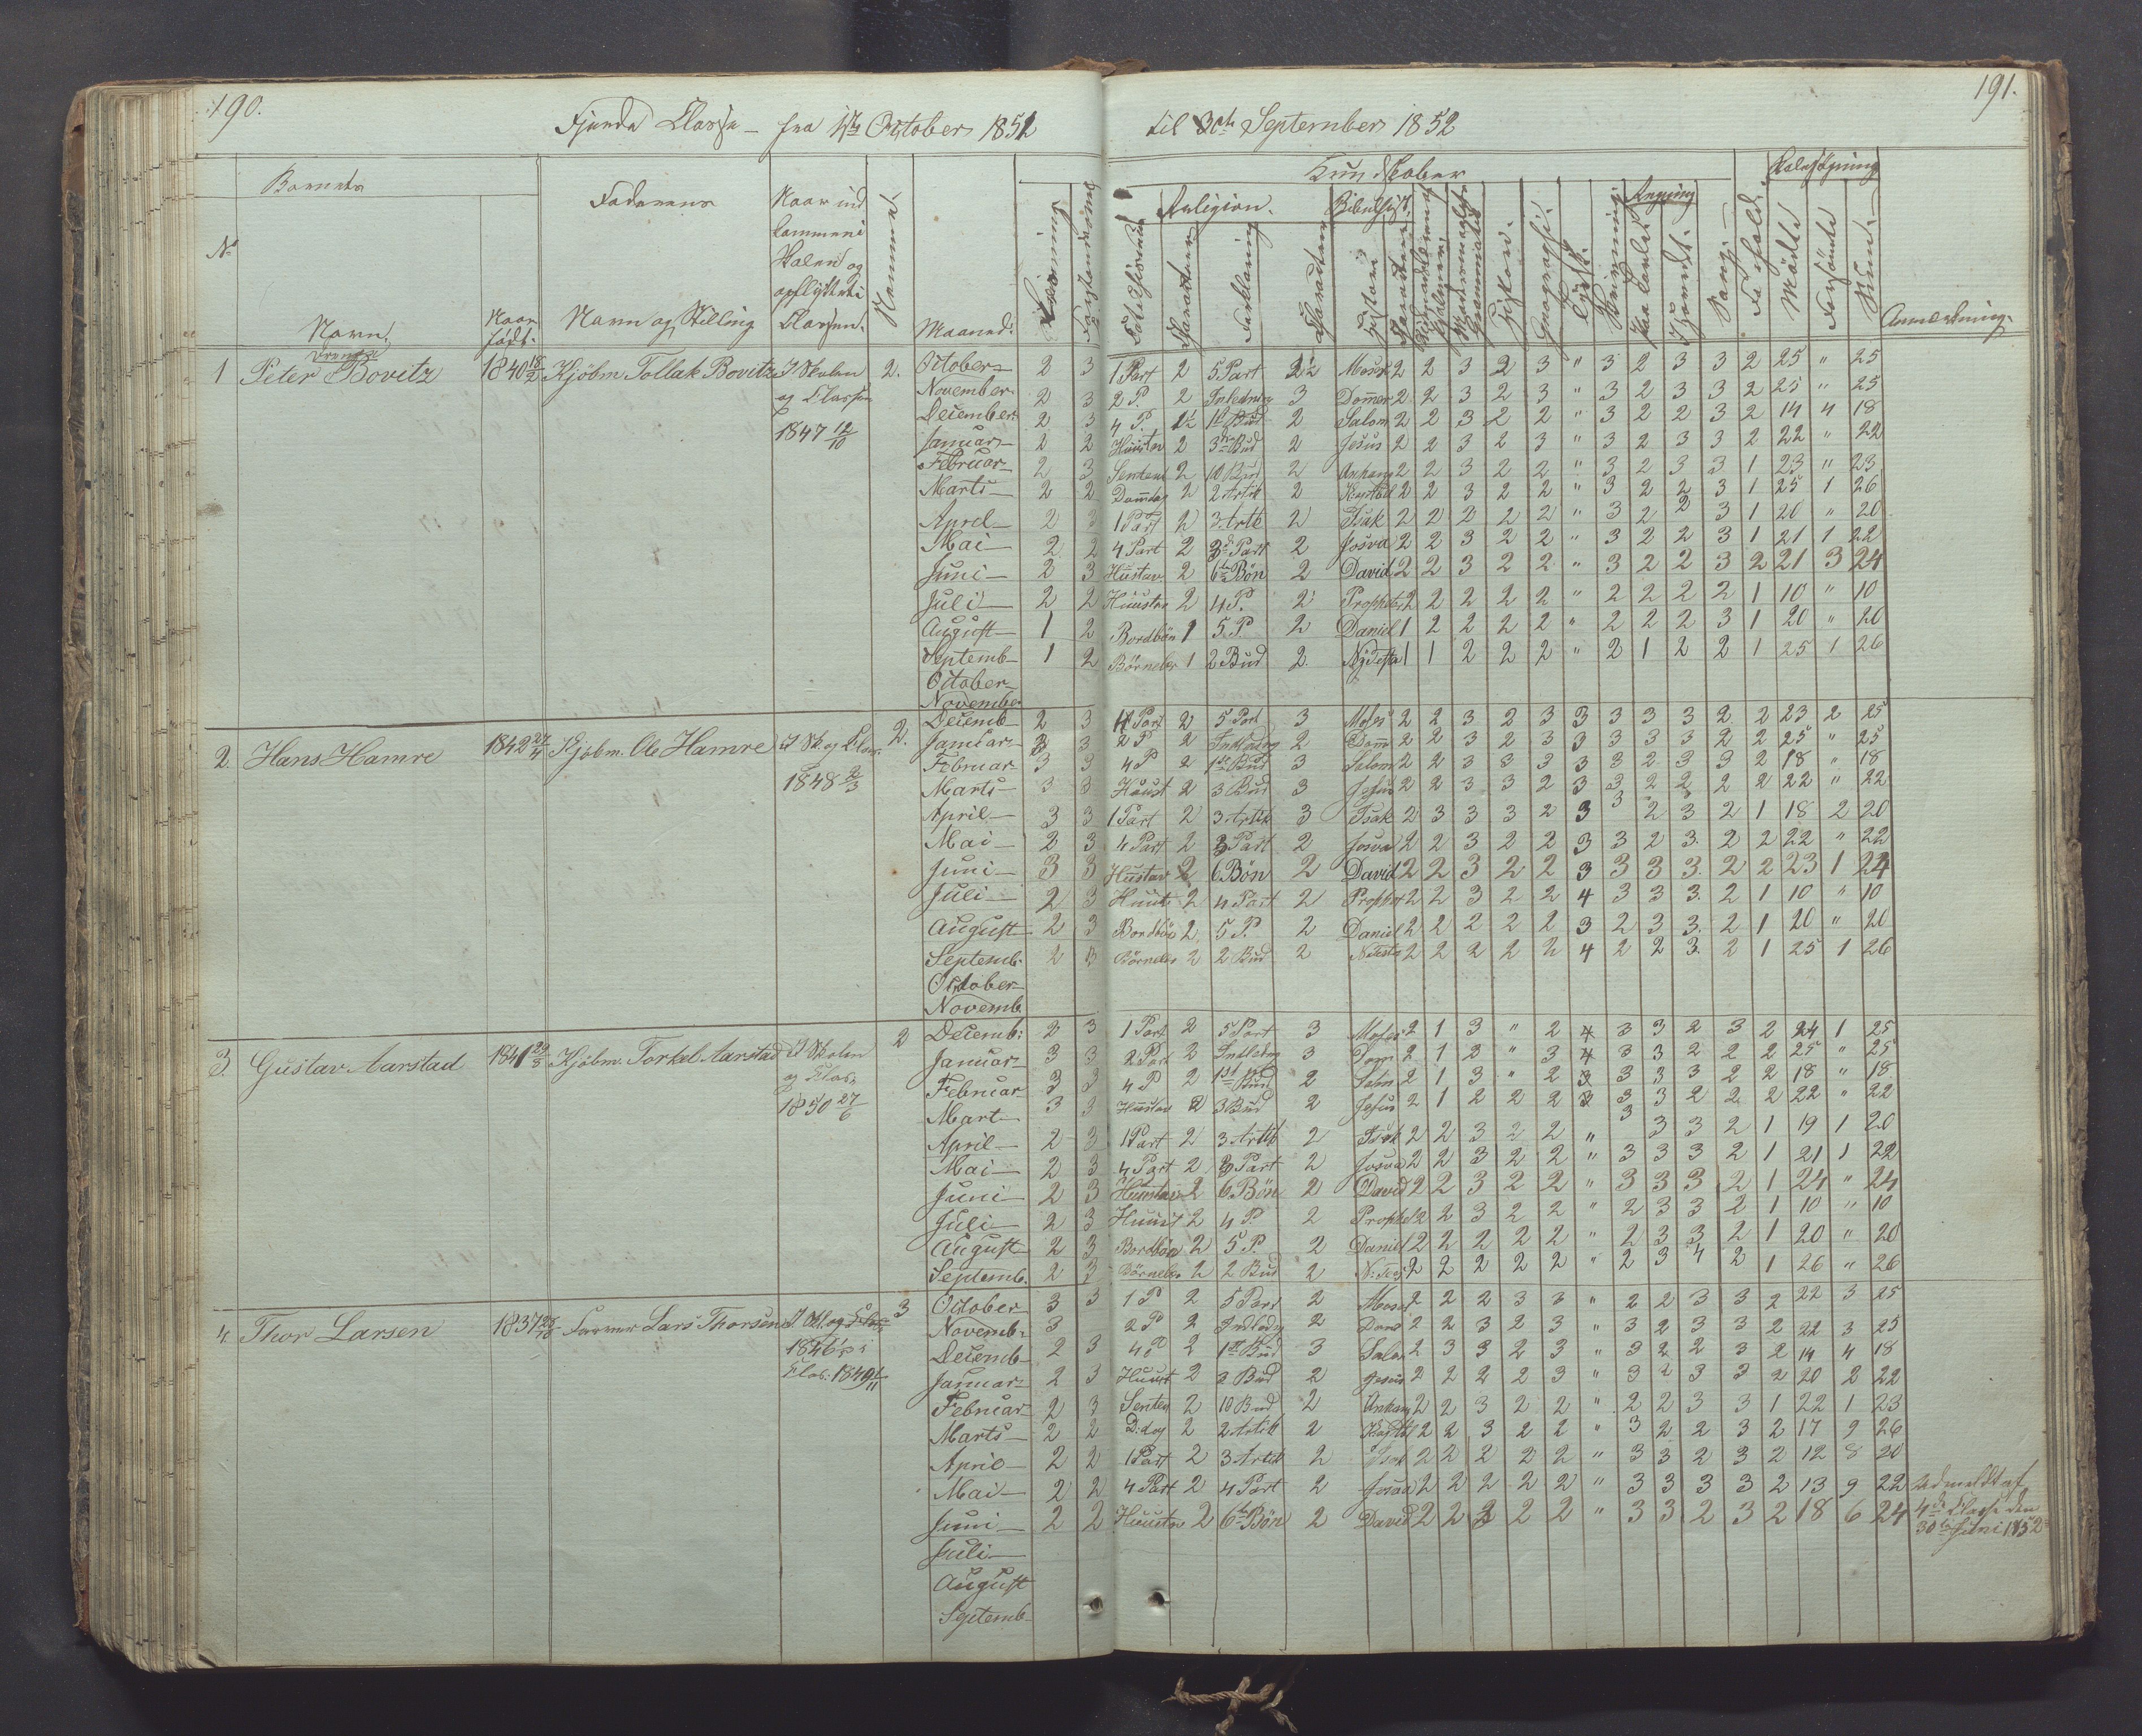 190.
191.
Fjerde Classe – fra 1ste October 1851 til 30te September 1852
Barnets
Faderens
Naar ind
kommen i
Skolen og
opflyttet i
Classen.
Kundskaber
Skolesøgning
Religion.
Bibelhist.
Regning
No
Navn.
Naar
født.
Navn og Stilling
Maaned.
Læsning
Forklaring
Historie.
Geographi.
Skrivning
Sang.
Forhold.
Mödte
Forsömte
Sum.
Anmærkning.
1 Peter Bovitz 1840 18/2 Kjöbm Tollak Bovitz I Skolen 2.
og Classen
1847 12/10
October 2 3 1 Part 2 5. Part 2½ Moses 2 2 3 2 3 " 3 2 3 3 2 25 " 25
November 2 3 2 P. 2 Inledning 3 Dommer 2 2 3 2 3 " 3 2 3 3 2 25 " 25
December 2 3 4 P. 1½ 1st Bud 2 Salom 2 2 3 2 2 " 3 2 2 3 2 14 4 18
Januar 2 2 Huustav 2 3die Bud 2 Jesus 2 2 3 2 3 " 3 2 3 3 2 22 " 22
Februar 2 3 2 10 Bud 2 Anhang 2 2 3 2 2 " 3 2 3 3 1 23 " 23
Marts 2 2 Domdag 2 2 Artik 2 2 2 3 2 2 " 3 2 2 3 1 25 1 26
Aprel 2 3 1 Part 2 3. Artk 2 Isak 2 2 2 2 2 " 3 2 2 3 1 20 " 20
Mai 2 2 4 Part 2 3d Part 2 Josva 2 2 3 2 2 " 3 2 2 3 1 21 1 22
Juni 2 3 Hustav 2 6te Bön 2 David 2 2 3 2 2 " 3 2 2 3 2 21 3 24
Juli 2 2 Huustav 2 4 P. 2 Propheter 2 2 2 2 2 " 2 2 2 2 1 10 " 10
August 1 2 Bordbön 1 5. P. 2 Daniel 1 2 2 2 2 " 2 2 2 3 1 20 " 20
Septemb 1 2 Börneler 1 2 Bud 2. 1 1 2 2 2 " 2 1 2 2 1 25 1 26
October
November
2. Hans Hamre 1842 27/4 Kjöbm. Ole Hamre I Sk. og Clas. 2.
1848 2/3
Decemb 2 3 1 Part 2 5 Part 3 Moses 2 2 3 2 3 3 3 3 3 2 2 23 2 25
Januar 3 3 2 P 2 Indledng 2 Dom 2 2 3 2 3 3 3 3 3 2 2 25 " 25
Februar 3 3 4 P 2 1ste Bud 3 Salom 2 2 3 3 3 3 3 2 3 3 2 18 " 18
Marts 3 3 Hüust 2 3 Bud 3 Jesus 2 2 3 3 2 3 3 2 2 2 2 22 " 22
April 3 3 1 Part 2 3. Artk 3 Isak 2 3 3 3 2 3 3 2 3 2 1 18 2 20
Mai 2 3 4 Part 2 3 Part 2 Josva 2 2 3 2 2 3 3 2 3. 2 2 22 " 22
Juni 3 3 Hustav 2 6. Bön 2 David 2 2 3 2 2 3 3 3 3. 2 2 23 1 24
Juli 2 3 Huust 2 4 Part 2 Prophet 2 2 3 2 2 4 3 3 3. 2 1 10 " 10
August 2 3 Bordbön 2 5 P. 2 Daniel 2 2 2 2 2 3 2 3 3. 2 1 20 " 20
Septemb. 2 3 Börneler 2 2 Bud 2 2 2 2 2 2 4 2 2 3. 2 1 25 1 26
October
Novemb.
3. Gustav Aarstad 1841 29/3 Kjöbm. Torkel Aarstad I Skolen 2
og Clas.
1850 27/6
Decemb: 2 3 1 Part 2 5 Part 3 Moses 2 1 3 " 2 4 3 3 2 3 2 24 1 25
Januar 3 3 2 Part 2 Indledng 3 Dom 2 1 3 " 3 4 3 3 2 2 2 25 " 25
Februar 3 3 4 P 2 1st Bud 2 2 1 3 " 2 3 3 3 3 2 2 18 " 18
Mart 3 3 Hustav 2 3 Bud 2 Jesus 2 1 2 2 2 3 3 3 2 2 2 22 " 22
April 2 3 1 Part 2 3. Artk 2 Isak 2 2 3 2 2 " 3 3 3 2 1 19 1 20
Mai 2 3 4 Part 2 3 Part 2 Josva 2 2 3 2 2 " 3 3 3 2 1 21 1 22
Juni 2 3 Huustav 2 6. Bön 2 David 2 2 3 2 2 " 3 3 3 2 1 24 " 24
Juli 2 3 Huust 2 4 P. 2 Prophet 2 2 3 2 2 " 2 3 3 2 1 10 " 10
August 2 3 Bordbön 2 5 P. 2 Daniel 2 2 2 2 2 " 2 3 3 2 1 20 " 20
Septemb. 2 3 Börneler 2 2 Bud 2 2 2 2 2 2 " 2 3 4 2 1 26 " 26
4. Thor Larsen 1837 Lars Thorsen 3
1846
Clas: 1849
October 3 3 1 P 2 5 Part 2 Moses 2 2 2 3 3 " 2 2 3 3 2 22 3 25
Novemb. 3 2 P 2 Indledg 2 Dom 2 2 3 2 3 " 3 2 3 3 2 22 3 25
Decemb 2 3 4 P 2 1ste Bud 3 Salom 2 3 3 2 3 " 3 2 2 3 2 14 4 18
Januar 2 3 Huust 2 3 Bud 2 Jesus 2 2 2 2 3 " 3 2 3 3 2 20 2 22
Februar 2 3 2 10 Bud 2 Anhang 2 2 3 2 2 " 2 2 3 3 1 22 1 23
Marts 2 2 D.dag 2 2 Artik 2 2 2 3 2 2 " 3 2 2 3 2 17 9 26
April 2 2 1 Part 2 3 Artk 2 Isak 2 2 2 2 2 " 3 3 2 3 2 12 8 20
Mai 2 2 4 Part 2 4 Part 2 Josva 2 2 2 2 2 " 3 3 3 3 2 13 9 22 Udmeldt af
Juni 2 2 Huustav 2 6te Bön 2 David 2 2 2 2 2 " 3 3 2 3 2 18 6 24 4de Classe den
30te Juni 1852
Juli
August
Septemb